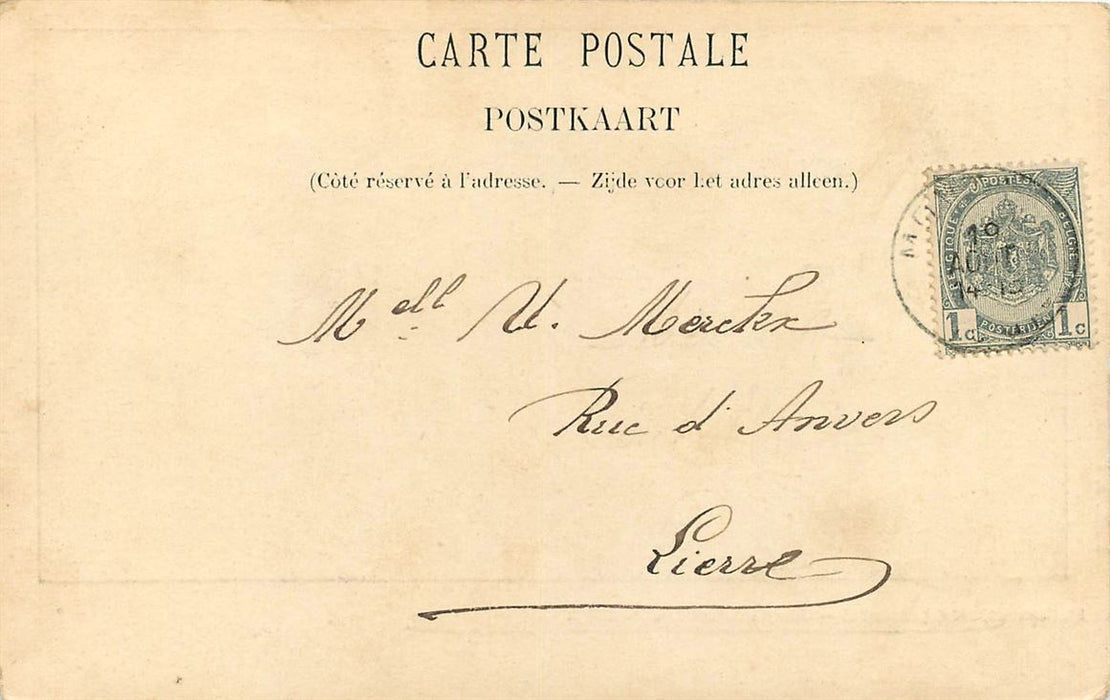 CARTE POSTALE
POSTKAART
(Côté réservé à l'adresse. — Zijde voor het adres alleen.)
POSTES
BELGIQUE
BELGIË
AOUT
1c 1c
POSTERIJEN
Mell. U. Merckx
Rue d'Anvers
Lierre